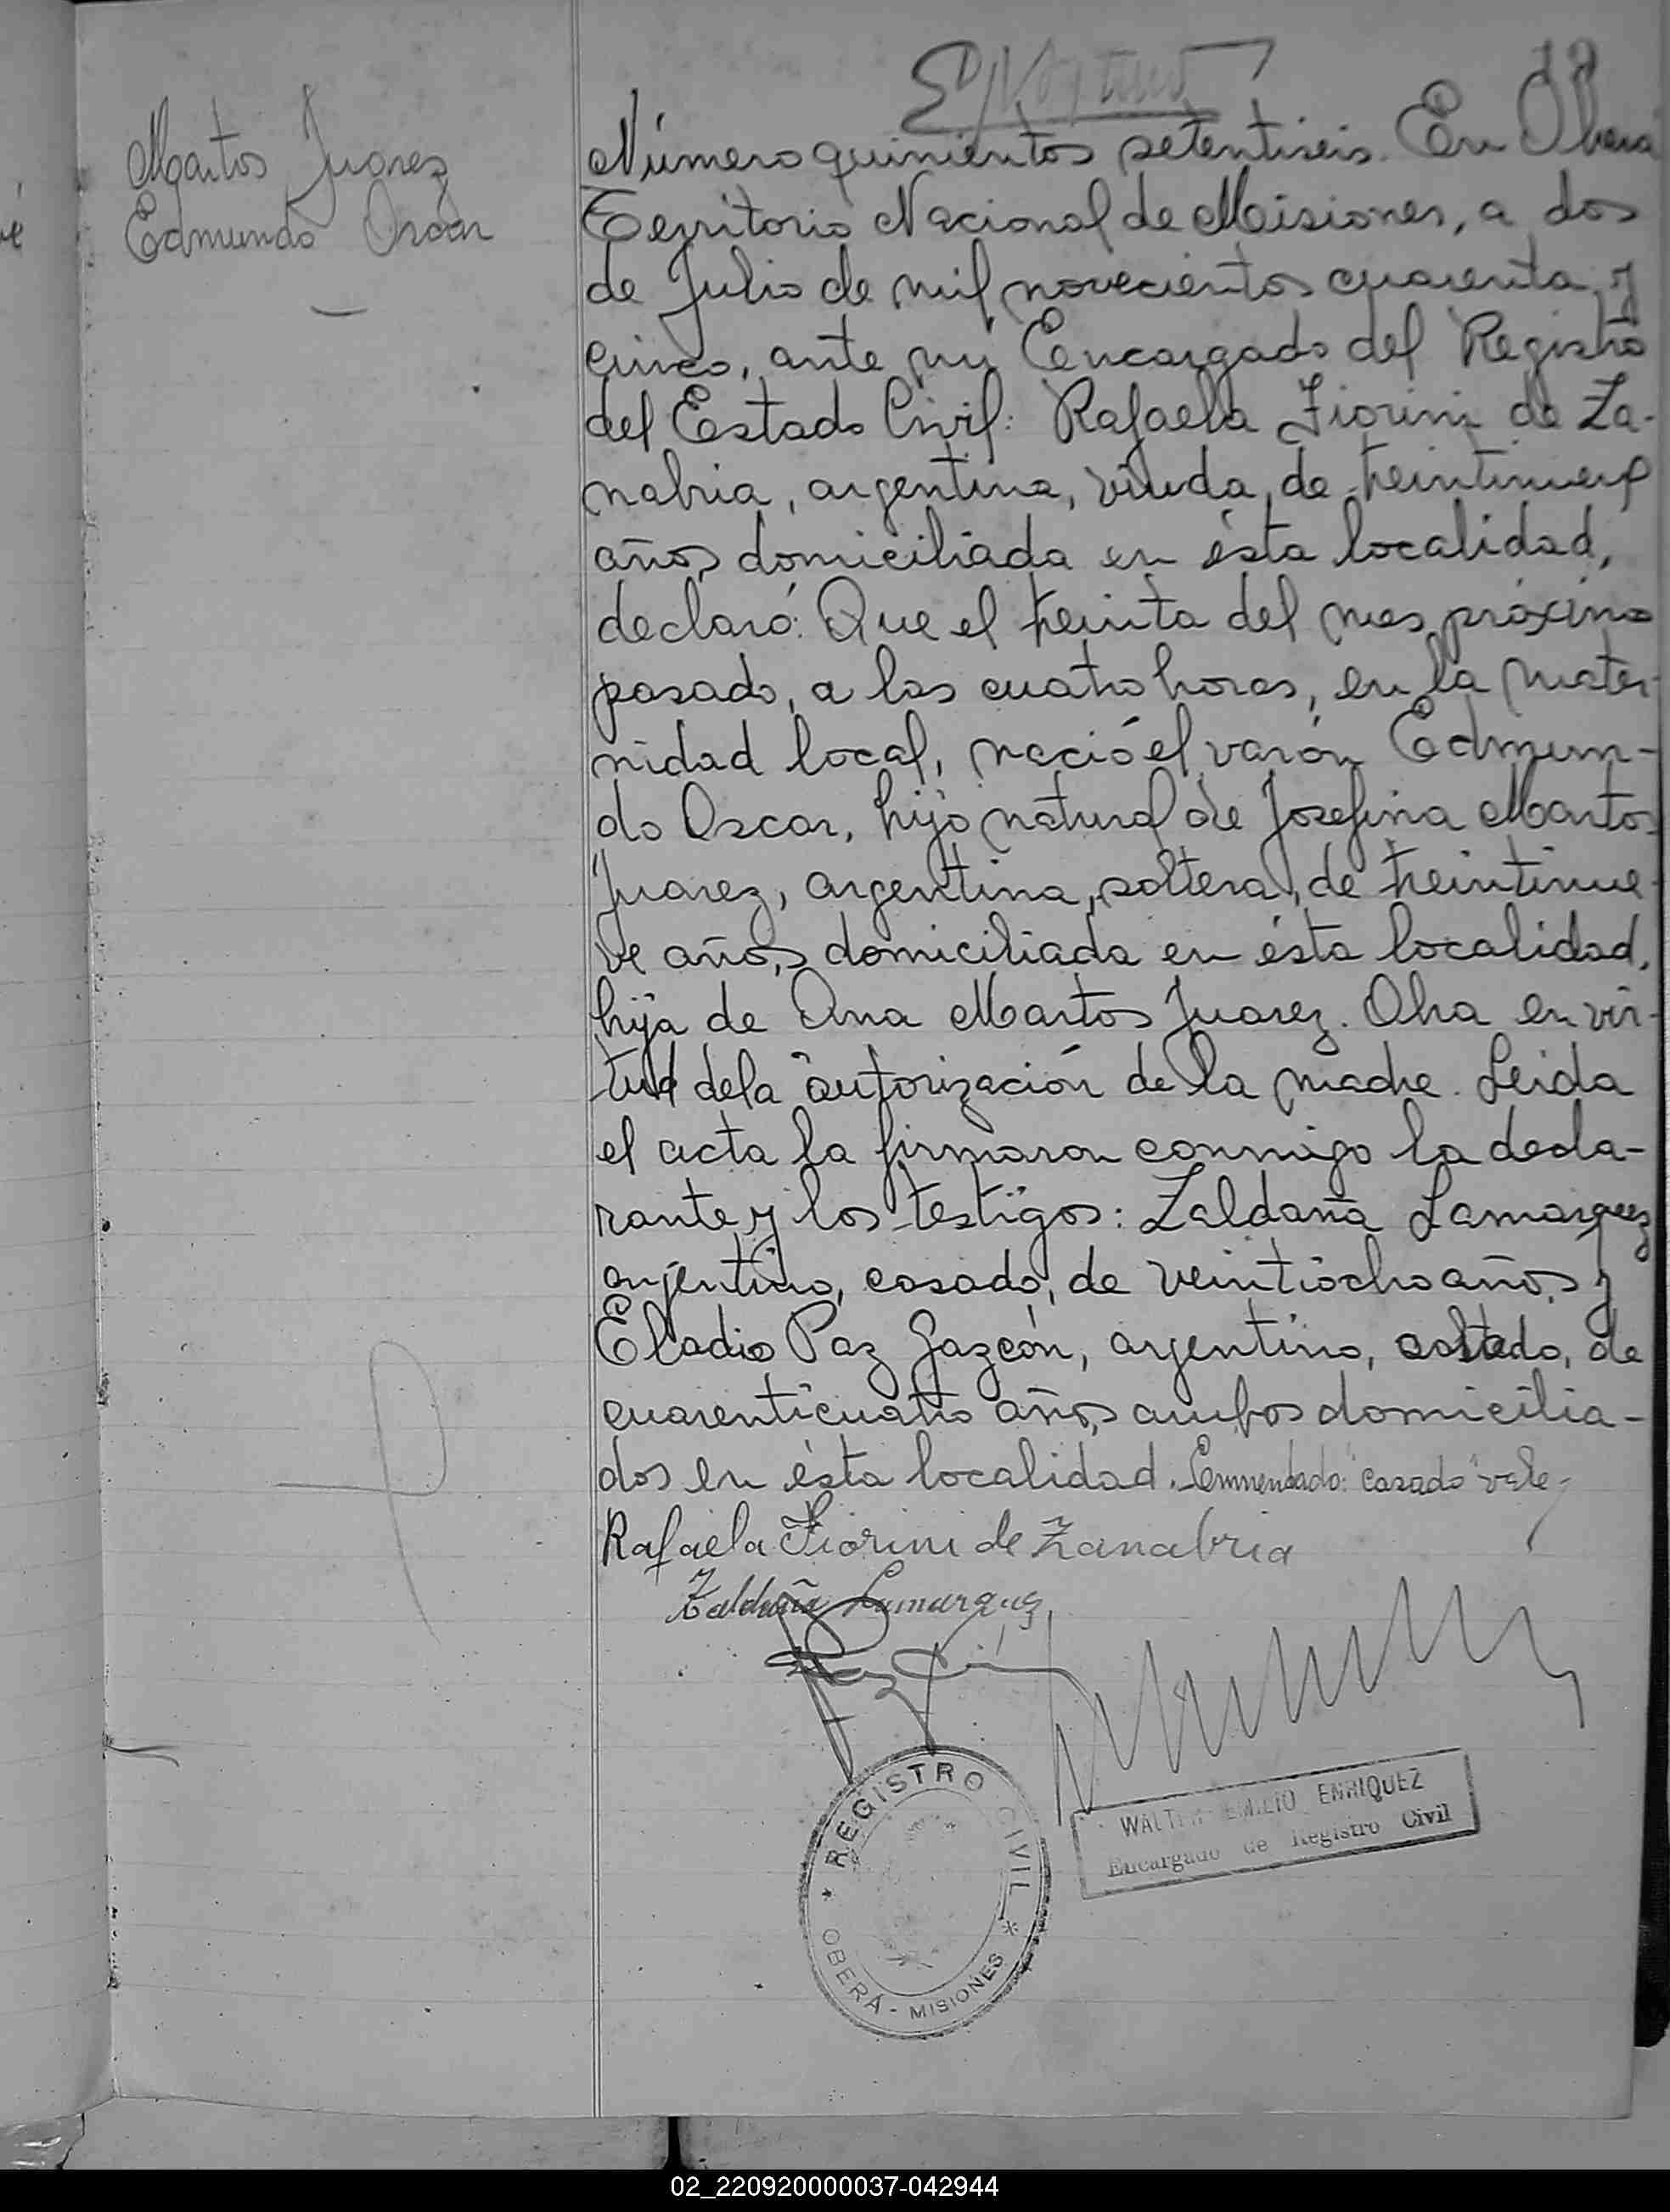 Martos Juarez
Edmundo Oscar
Número quinientos setentiseis. En Oberá
Territorio Nacional de Misiones, a dos
de Julio de mil novecientos cuarenta y
cinco, ante mi Encargado del Registro
del Estado Civil: Rafaela Fiorini de Za-
nabria, argentina, viuda, de treintinueve
años, domiciliada en ésta localidad,
declaró: Que el treinta del mes próximo
pasado, a las cuatro horas, en la mater-
nidad local, nació el varón Edmun-
do Oscar, hijo natural de Josefina Martos
Juarez, argentina, soltera, de treintinue-
ve años, domiciliada en ésta localidad,
hija de Ana Martos Juarez. Obra en vir-
tud de la autorización de la madre. Leida
el acta la firmaron conmigo la decla-
rante y los testigos: Zaldaña Lamarquez
argentino, casado, de veintiocho años y
Eladio Paz Gazcón, argentino, casado, de
cuarenticuatro años, ambos domicilia-
dos en ésta localidad. Enmendado: "casado" vale
Rafaela Fiorini de Zanabria
Zaldaña Lamarquez
REGISTRO CIVIL
OBERÁ - MISIONES
WALTER EMILIO ENRIQUEZ
Encargado de Registro Civil
02_220920000037-042944